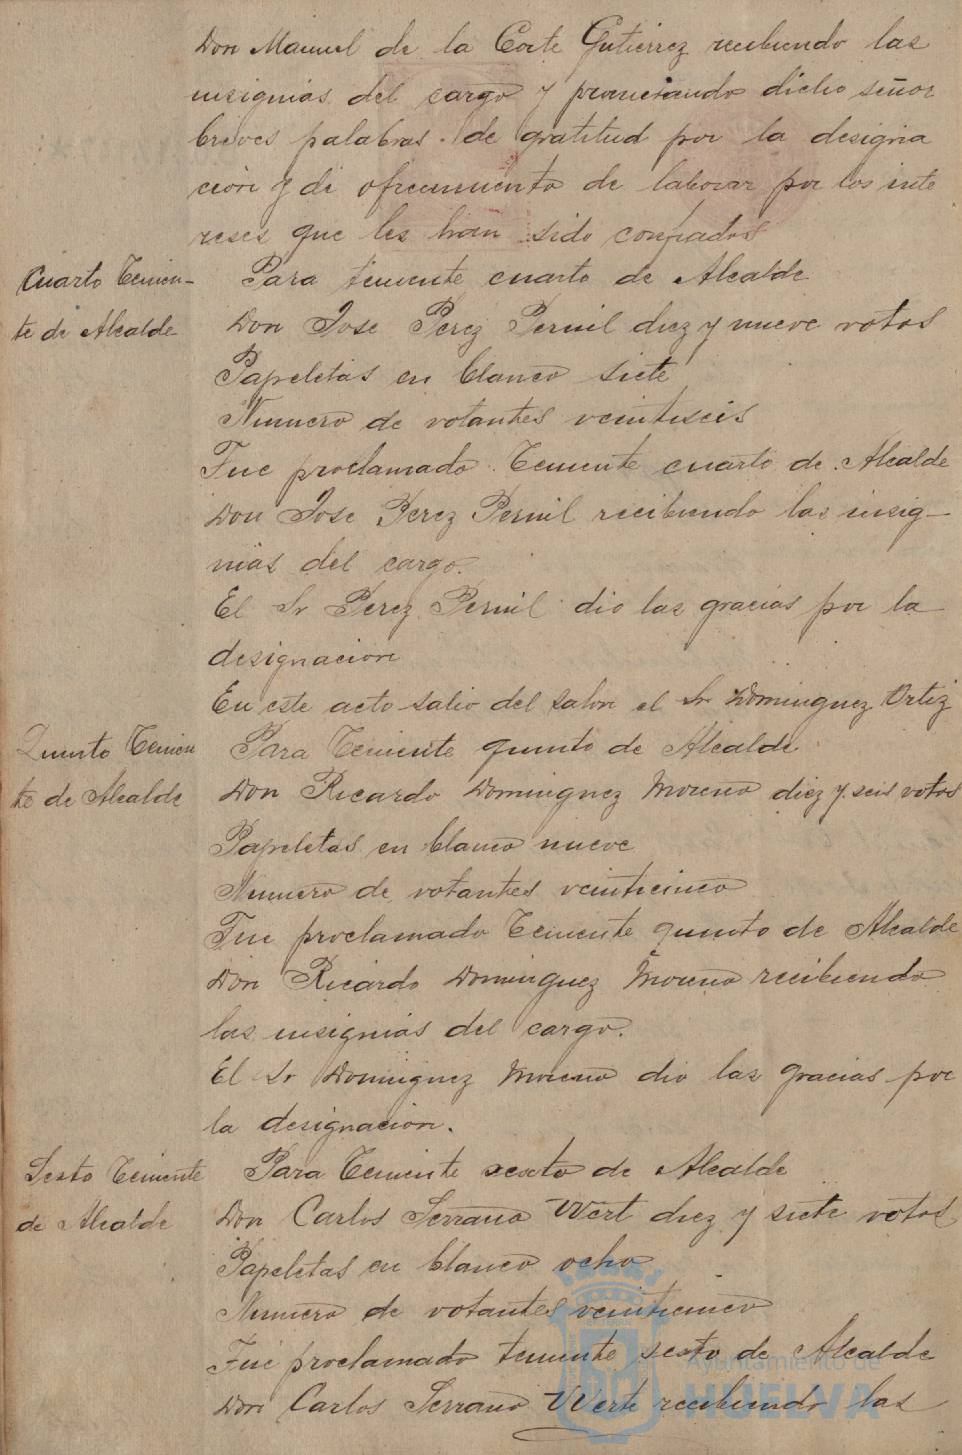 Don Manuel de la Corte Gutierrez recibiendo las
insignias del cargo y pronunciando dicho señor
breves palabras de gratitud por la designa
ción y de ofrecimiento de laborar por los inte
reses que les han sido confiados
Cuarto Tenien-
te de Alcalde
Para teniente cuarto de Alcalde
Don Jose Perez Pernil diez y nueve votos
Papeletas en blanco siete
Numero de votantes veintiseis
Fue proclamado Teniente cuarto de Alcalde
Don Jose Perez Pernil recibiendo las insig-
nias del cargo.
El Sr Perez Pernil dio las gracias por la
designacion
En este acto salio del salon el Sr Dominguez Ortiz
Quinto Tenien
te de Alcalde
Para Teniente quinto de Alcalde
Don Ricardo Dominguez Moreno diez y seis votos
Papeletas en blanco nueve
Numero de votantes veinticinco
Fue proclamado Teniente quinto de Alcalde
Don Ricardo Dominguez Moreno recibiendo
las insignias del cargo.
El Sr Dominguez Moreno dio las gracias por
la designacion.
Sesto Teniente
de Alcalde
Para Teniente sexto de Alcalde
Don Carlos Serrano Wert diez y siete votos
Papeletas en blanco ocho
Numero de votantes veinticinco
Fue proclamado teniente sesto de Alcalde
Don Carlos Serrano Wert recibiendo las
Ayuntamiento de
HUELVA